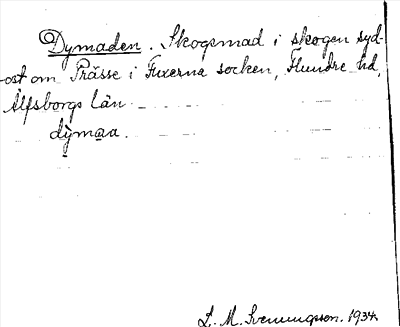 Dymaden. Skogsmad i skogen syd-
ost om Prässe i Fuxerna socken, Flundre hd,
Älfsborgs län.
dymaa.
L. M. Svenungsson. 1934.